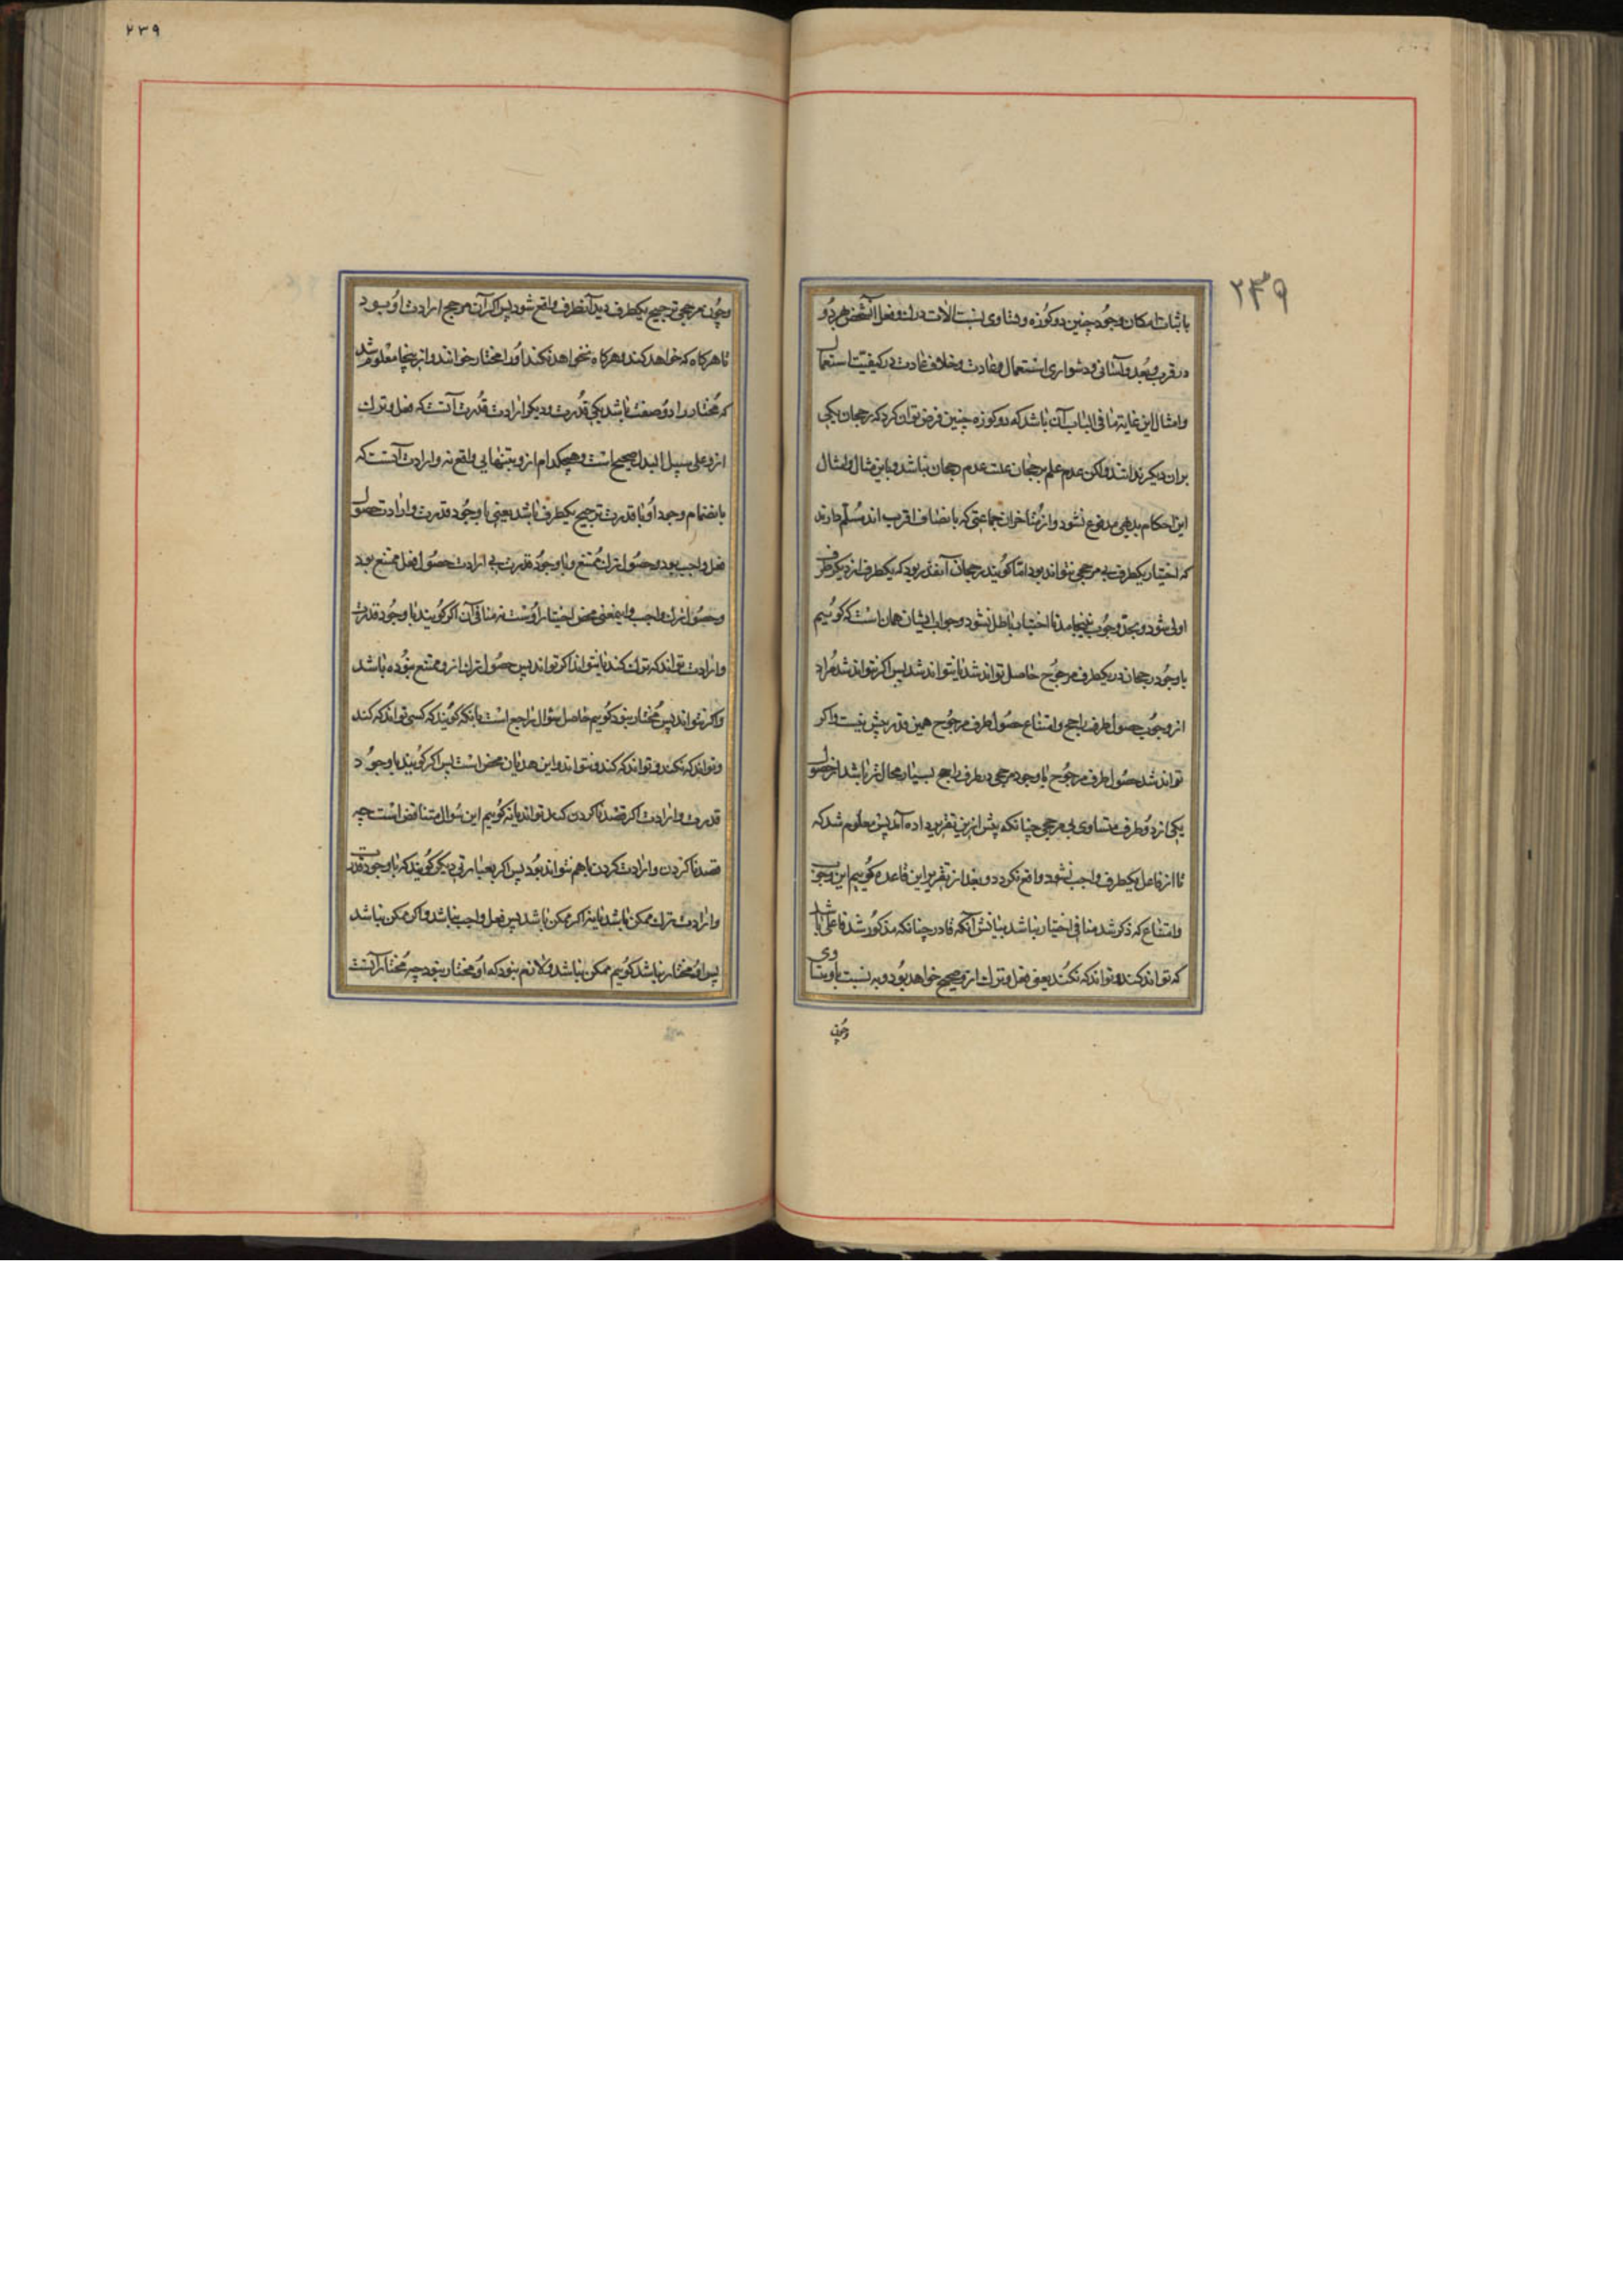 ۲۳۹
باثبات امکان وجود چنین دو کوزه و تساوی نسبت الات در آن و فعل آنشخص هر دو
در قرب و بعد و آسانی و دشواری استعمال و عادت و خلاف عادت در کیفیت استعمال
و امثال این غایة ما فی الباب آن باشد که دو کوزه چنین فرض توان کرد که رجحان یکی
بران دیگر ندانند ولکن عدم علم برجحان علت عدم رجحان نباشد و باین مثال و امثال
این احکام بدیهی مدفوع نشود و از متاخران جماعتی که بانصاف اقرب اند مسلم دارند
که اختیار یکطرف بی مرجحی نتواند بود اما گویند رجحان آنقدر بود که یکطرف از دیگر طرف
اولی شود و بحد وجوب نینجامد تا اختیار باطل نشود و جواب ایشان همان است که گوئیم
با وجود رجحان در یکطرف مرجوح حاصل تواند شد یا نتواند شد پس اگر نتواند شد مراد
از وجوب حصول طرف راجح و امتناع حصول طرف مرجوح همین قدر بیش نیست و اگر
تواند شد حصول طرف مرجوح با وجود مرجحی در طرف راجح بسیار محال تر باشد از حصول
یکی از دو طرف متساوی بی مرجحی چنانکه پیش ازین تقریر داده آمد پس معلوم شد که
تا از فاعل یکطرف واجب نشود واقع نگردد و بعد از تقریر این قاعده گوییم این وجوب
و امتناع که ذکر شد منافی اختیار نباشد بیانش آنکه قادر چنانکه مذکور شد فاعلی باشد
که تواند کند و تواند که نکند یعنی فعل و ترک ازو صحیح خواهد بود و به نسبت با او متساوی
وچون
۲۳۹
وچون مرجحی ترجیح یکطرف دید آنطرف واقع شود پس اگر آن مرجح ارادت او بود
تا هرگاه که خواهد کند و هرگاه نخواهد نکند او را مختار خوانند و از ینجا معلوم شد
که مختار را دو صفت باشد یکی قدرت و دیگر ارادت قدرت آنست که فعل و ترک
ازو علی سبیل البدل صحیح است و هیچکدام ازو بتنهایی واقع نه و ارادت آنست که
بانضمام وجود او با قدرت ترجیح یکطرف باشد یعنی با وجود قدرت و ارادت حصول
فعل واجب بود و حصول ترک ممتنع و با وجود قدرت بی ارادت حصول فعل ممتنع بود
و حصول ترک واجب و اینمعنی محض اختیار اوست نه منافی آن اگر گویند با وجود قدرت
و ارادت تواند که ترک کند یا نتواند اگر تواند پس حصول ترک ازو ممتنع نبوده باشد
و اگر نتواند پس مختار نبود گوییم حاصل سؤال راجع است بانکه گویند که کسی تواند که کند
و تواند که نکند و تواند که کند و نتواند و این هذیان محض است پس اگر گویند با وجود
قدرت و ارادت اگر قصد ناکردن کند تواند یا نه گوییم این سؤال متناقض است چه
قصد ناکردن و ارادت کردن باهم نتواند بود پس اگر بعبارتی دیگر گویند که با وجود قدرت
و ارادت ترک ممکن باشد یا نه اگر ممکن باشد پس فعل واجب نباشد و اگر ممکن نباشد
پس او مختار نباشد گوییم ممکن نباشد و لازم نبود که او مختار نبود چه مختار آنست